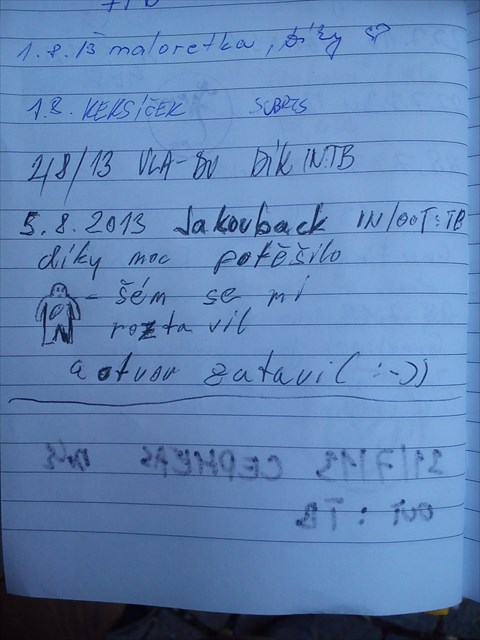 1.8.13 maloretka, Díky
1.8. KEKSÍČEK SUBRTS
2/8/13 VLA-BU DÍK IN:TB
5.8.2013 Jakouback IN/OUT:TB
díky moc potěšilo
- šém se mi
roztavil
a otvor zatavil :-))
31/7/13 CEPHEAS
OUT: TB